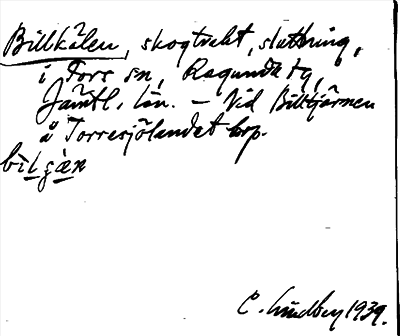 Billkälen, skogtrakt, sluttning,
i Fors sn, Ragunda tg,
Jämtl. län. – Vid Billtjärnen
å Torresjölandet krp.
bìlçàn
C. Lindberg 1939.